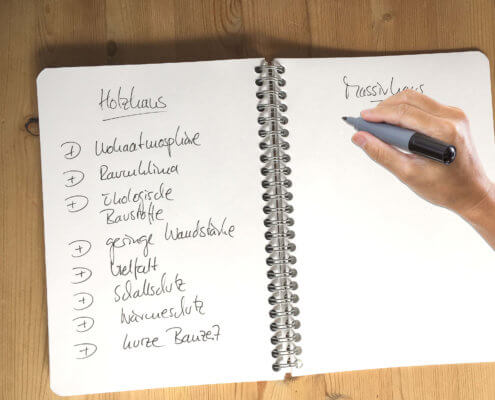 Holzhaus
⊕ Wohnatmosphäre
⊕ Raumklima
⊕ Ökologische
Baustoffe
⊕ geringe Wandstärke
⊕ Vielfalt
⊕ Schallschutz
⊕ Wärmeschutz
⊕ kurze Bauzeit
Massivhaus